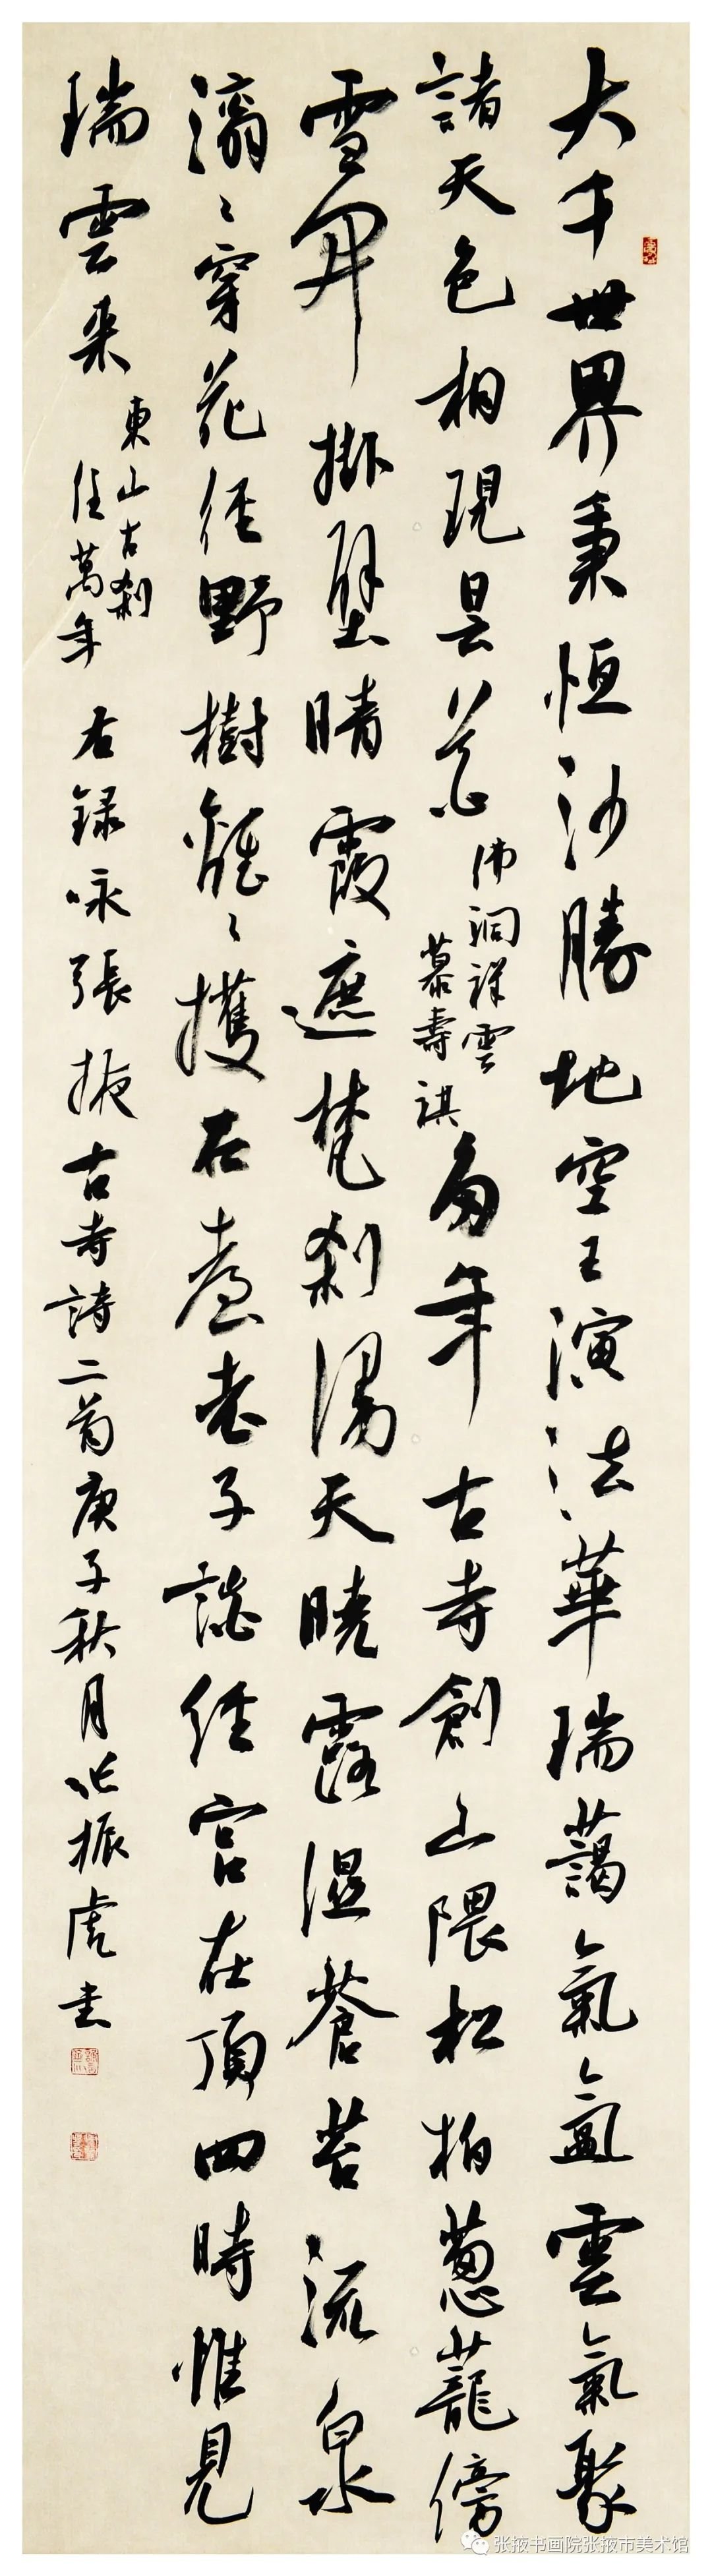 大千世界秉恒沙勝地空王演法華瑞藹氣氲雲氣聚
諸天色相現曇花
佛洞祥雲
慕壽祺
多年古寺創山隈松柏蔥蘢傍
雪開掛壁晴霞遮梵刹漫天曉露濕蒼苔流泉
滴〻穿花徑野樹〻擁石臺老子談經宮在頂四時惟見
瑞雲来
東山古刹
任萬年
右録咏張掖古寺詩二首庚子秋月振虎書
张掖书画院张掖市美术馆